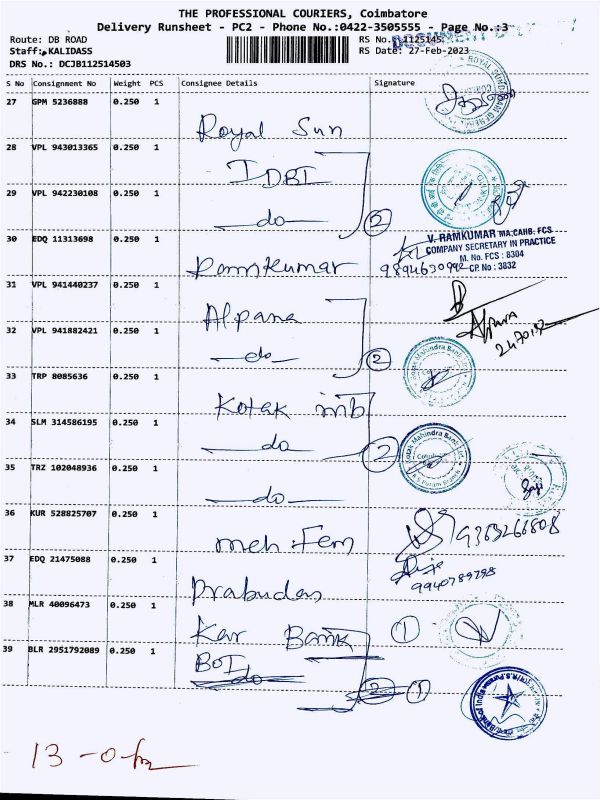 THE PROFESSIONAL COURIERS, Coimbatore
Delivery Runsheet - PC2 - Phone No.:0422-3505555 - Page No.:3
Route: DB ROAD
RS No.: 1125145
Staff: KALIDASS
RS Date: 27-Feb-2023
DRS No.: DCJB112514503
S No Consignment No Weight PCS Consignee Details Signature
27 GPM 5236888 0.250 1
Royal Sun
28 VPL 943013365 0.250 1
IDBI
29 VPL 942230108 0.250 1
do 2
30 EDQ 11313698 0.250 1
V. RAMKUMAR MA,CAIIB, FCS
COMPANY SECRETARY IN PRACTICE
M. No. FCS : 8304
CP. No : 3832
Ramkumar
31 VPL 941440237 0.250 1
Alpana
32 VPL 941882421 0.250 1
do 2
33 TRP 8085636 0.250 1
Kotak mb
34 SLM 314586195 0.250 1
do 2
35 TRZ 102048936 0.250 1
do
36 KUR 528825707 0.250 1
meh Fem
37 EDQ 21475088 0.250 1
9940789798
Prabudas
38 MLR 40096473 0.250 1
Kar Bank 1
39 BLR 2951792089 0.250 1
BOI
do 2 1
13